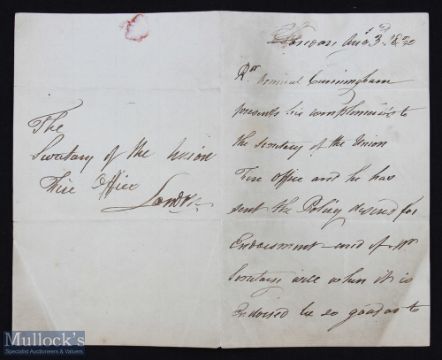 The
Secretary of the Union
Fire Office
London
London Augt 3. 1820
Rr Admiral Cunningham
presents his complements to
the Secretary of the Union
Fire Office and he has
sent the Policy desired for
Endorsement and if Mr
Secretary will when it is
Endorsed be so good as to
Mullock's
Specialist Auctioneers & Valuers